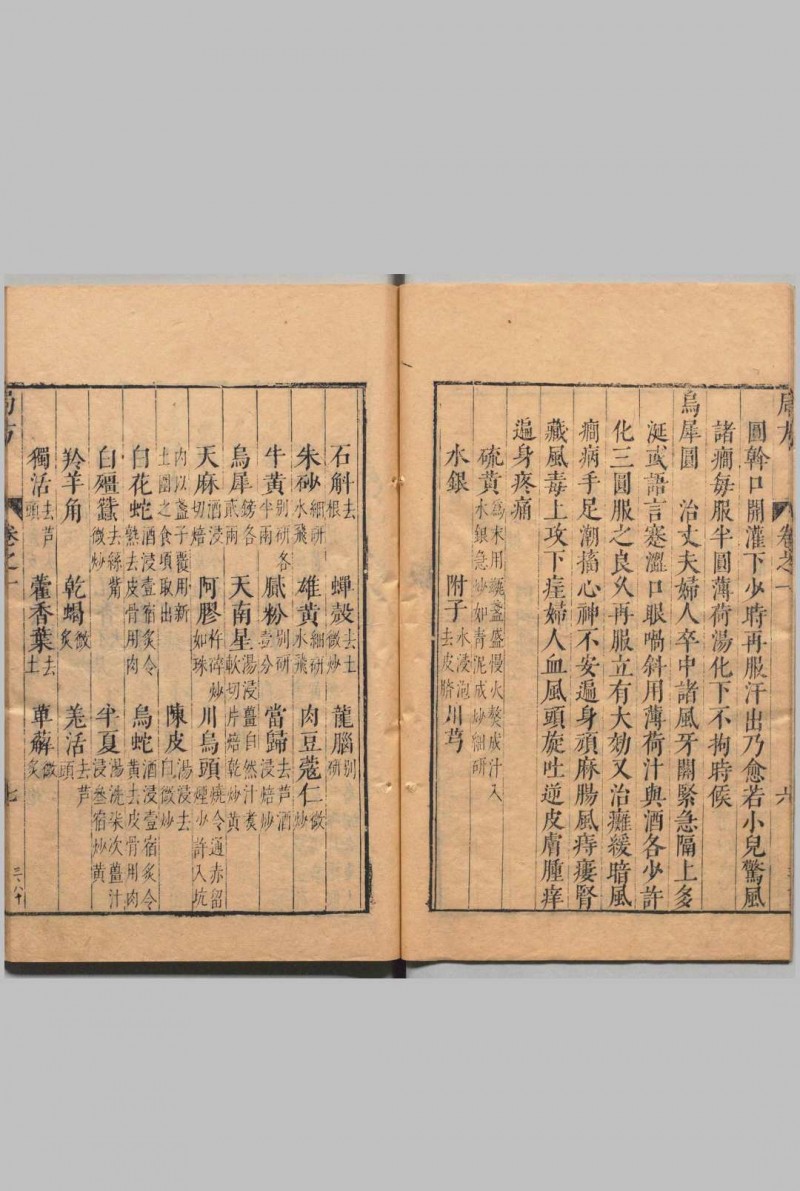 圓斡口開灌下少時再服汗出乃愈若小兒驚風
諸癇每服半圓薄荷湯化下不拘時候
烏犀圓　治丈夫婦人卒中諸風牙關緊急隔上多
涎或語言蹇澀口眼喎斜用薄荷汁與酒各少許
化三圓服之良久再服立有大効又治癱緩暗風
癇病手足潮搐心神不安遍身頑麻腸風痔瘻腎
藏風毒上攻下疰婦人血風頭旋吐逆皮膚腫痒
遍身疼痛
硫黃為末用甆盞盛慢火熬成汁入水銀急炒如青泥成炒細研
水銀　附子水浸泡去皮臍　川芎
局方　卷之一　六
石斛去根　蟬殼去土微炒　龍腦別研
朱砂細研水飛　雄黃細研水飛　肉豆蔻仁微炒
牛黃別研各半兩　膩粉別研壹分　當歸去芦酒浸焙炒
烏犀鎊各貳兩　天南星湯浸薑自然汁煑軟切片焙乾炒黃
天麻酒浸切焙　阿膠杵碎炒如珠　川烏頭燒令通赤留煙少許入坑
內以盞子覆用新土圍之食頃取出　陳皮湯浸去白微炒
白花蛇酒浸壹宿炙令熟去皮骨用肉　烏蛇酒浸壹宿炙令黃去皮骨用肉
白殭蠶去絲觜微炒　半夏湯洗柒次薑汁浸叁宿炒黃
羚羊角　乾蝎微炙　羌活去芦頭
獨活去芦頭　藿香葉去土　萆薢微炙
局方　卷之一　七
三八十